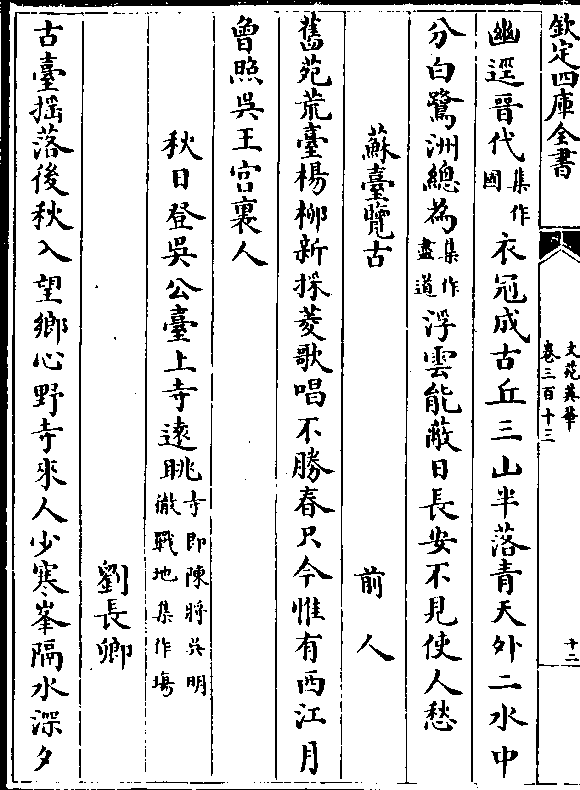 欽定四庫全書
文苑英華
卷三百十三
十二
幽逕晉代集作國衣冠成古丘三山半落青天外二水中
分白鷺洲總為集作盡道浮雲能蔽日長安不見使人愁
蘇臺覽古 前人
舊苑荒臺楊柳新採菱歌唱不勝春只今惟有西江月
曾照吳王宮裏人
秋日登吳公臺上寺遠眺寺即陳將吳明徹戰地集作場
劉長卿
古臺揺落後秋入望鄉心野寺來人少寒峯隔水深夕